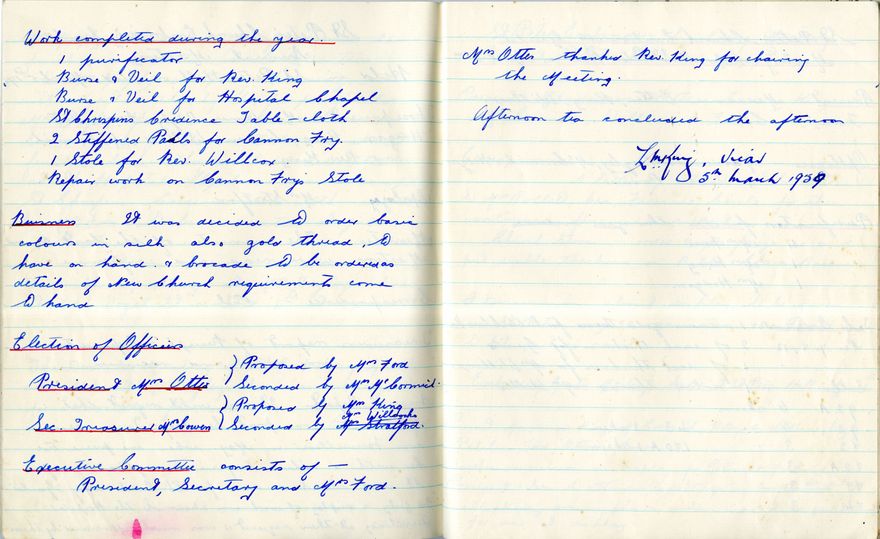 Work completed during the year.
1 purificator
Burse & Veil for Rev. King
Burse & Veil for Hospital Chapel
St Chrispins Credence Table-cloth
2 Stiffened Palls for Cannon Fry.
1 Stole for Rev. Willcox.
Repair work on Cannon Frys Stole
Buisness It was decided to order basic
colours in silk also gold thread, to
have on hand. & brocade to be ordered as
details of New Church requirements come
to hand
Election of Officers
} Proposed by Mrs Ford
President Mrs Otter } Seconded by Mrs McCormick.
} Proposed by Mrs King
Mrs Willcocks
Sec. Treasurer Mrs Cowen { Seconded by Mrs Stratford.
Executive Committee consists of —
President, Secretary and Mrs Ford.
Mrs Otter thanked Rev. King for chairing
the Meeting.
Afternoon tea concluded the afternoon
King, Vicar
5th March 1959